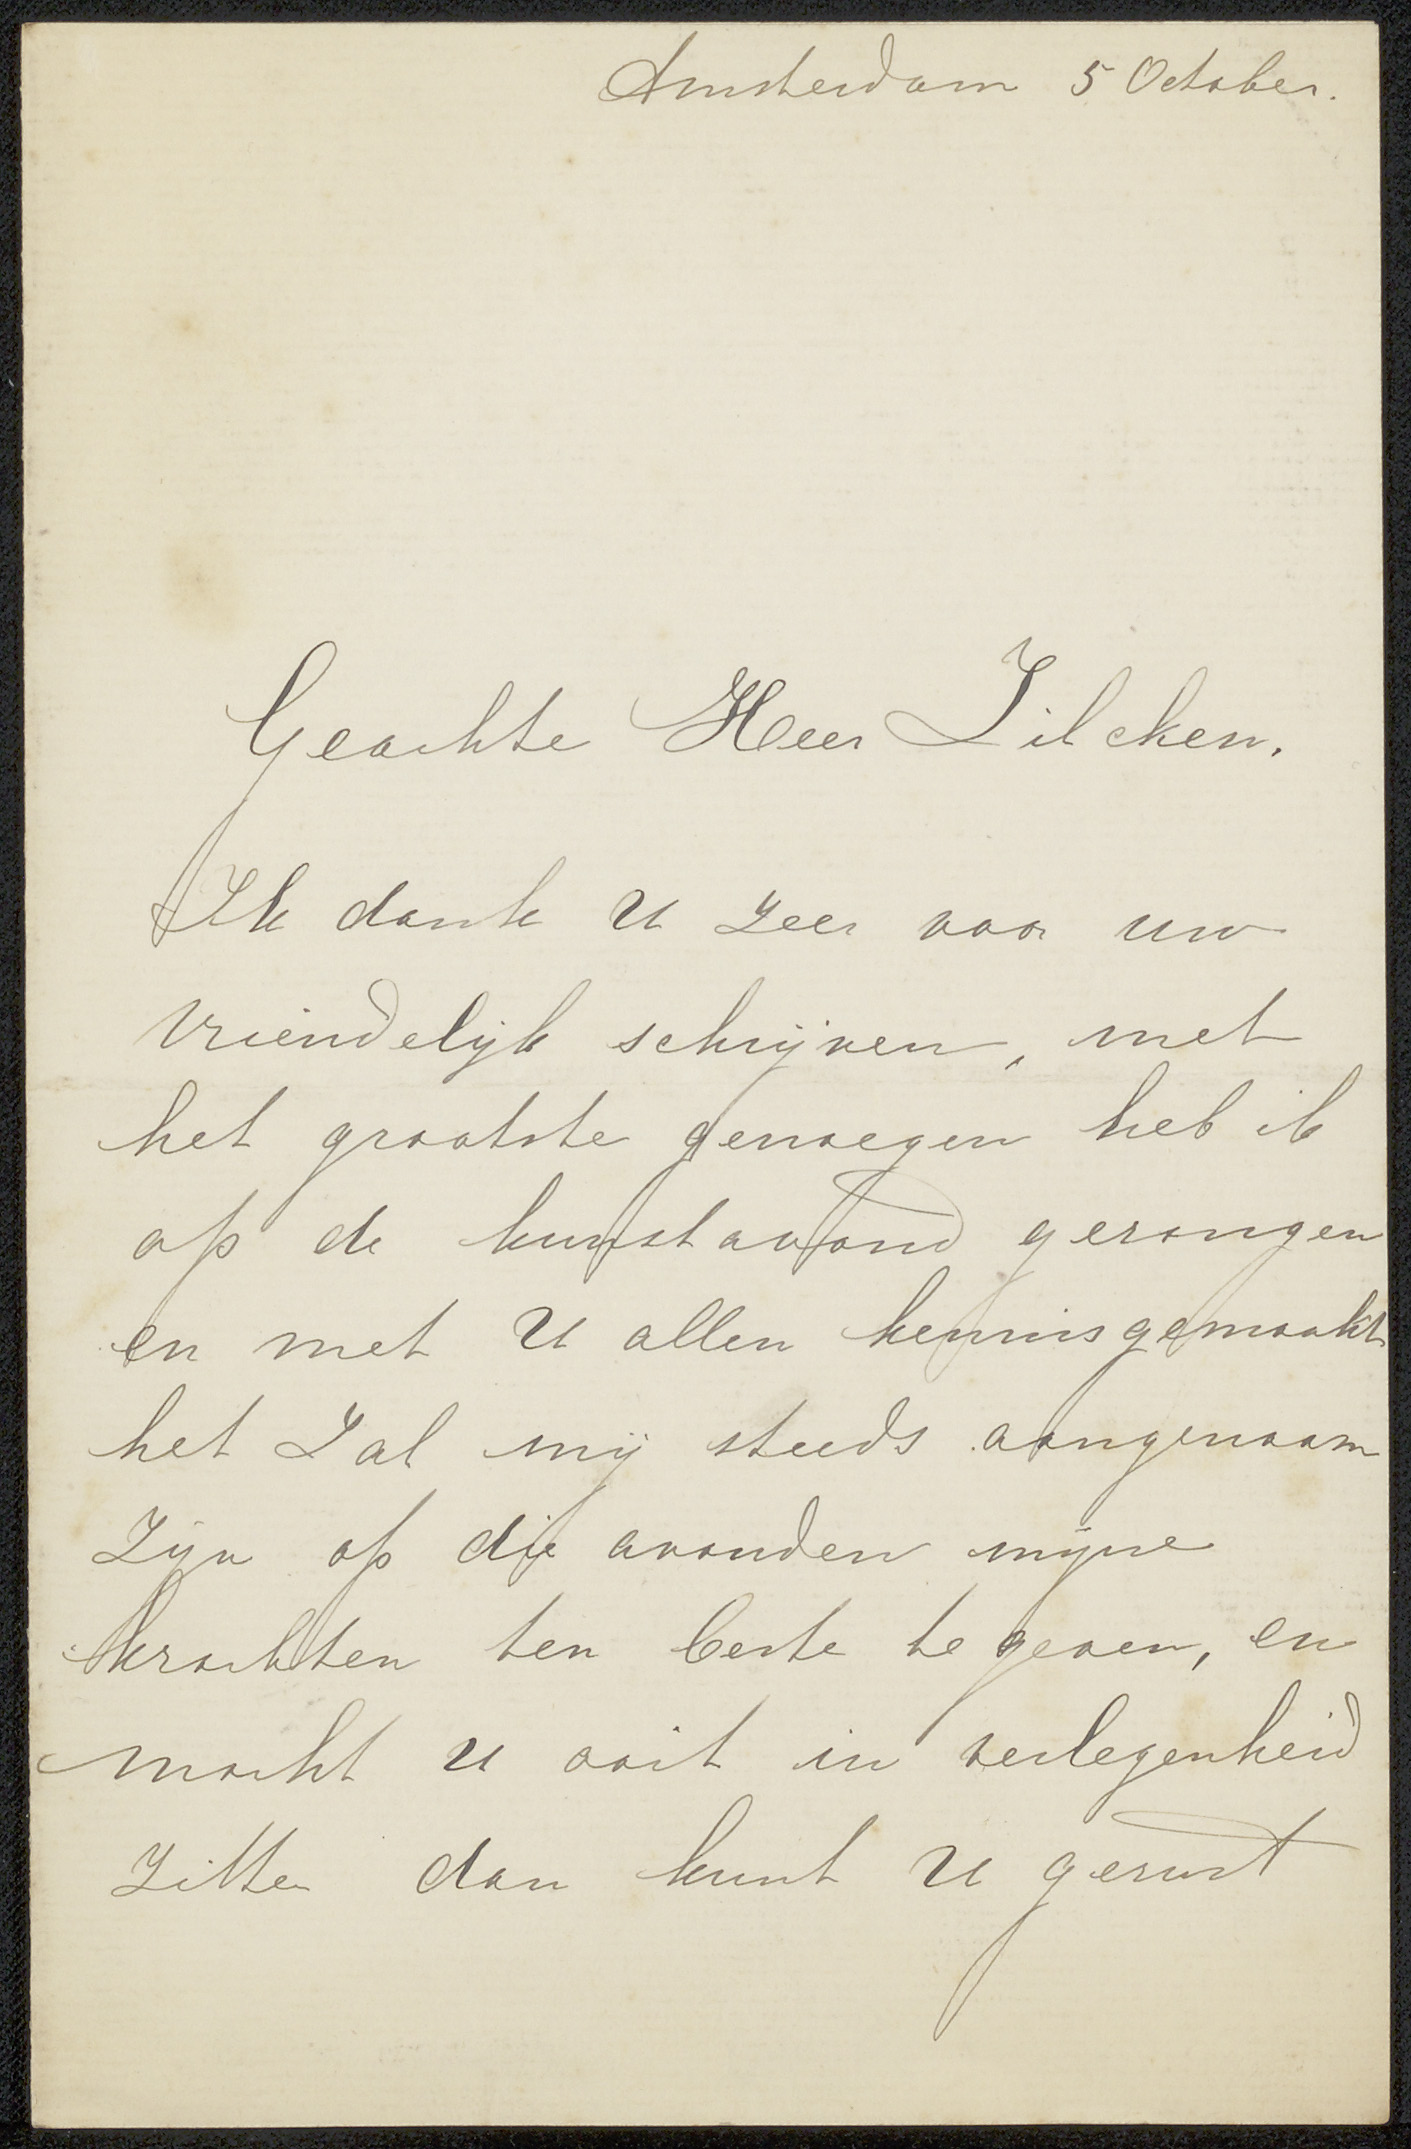 Amsterdam 5 October.
Geachte Heer Zilcken.
Ik dank U zeer voor uw
vriendelijk schrijven, met
het grootste genoegen heb ik
op de kunstavond gezongen
en met U allen kennisgemaakt
het Zal mij steeds aangenaam
Zijn op die avonden mijne
krachten ten beste te geven, en
mocht u ooit in verlegenheid
Zitten dan kunt U gerust